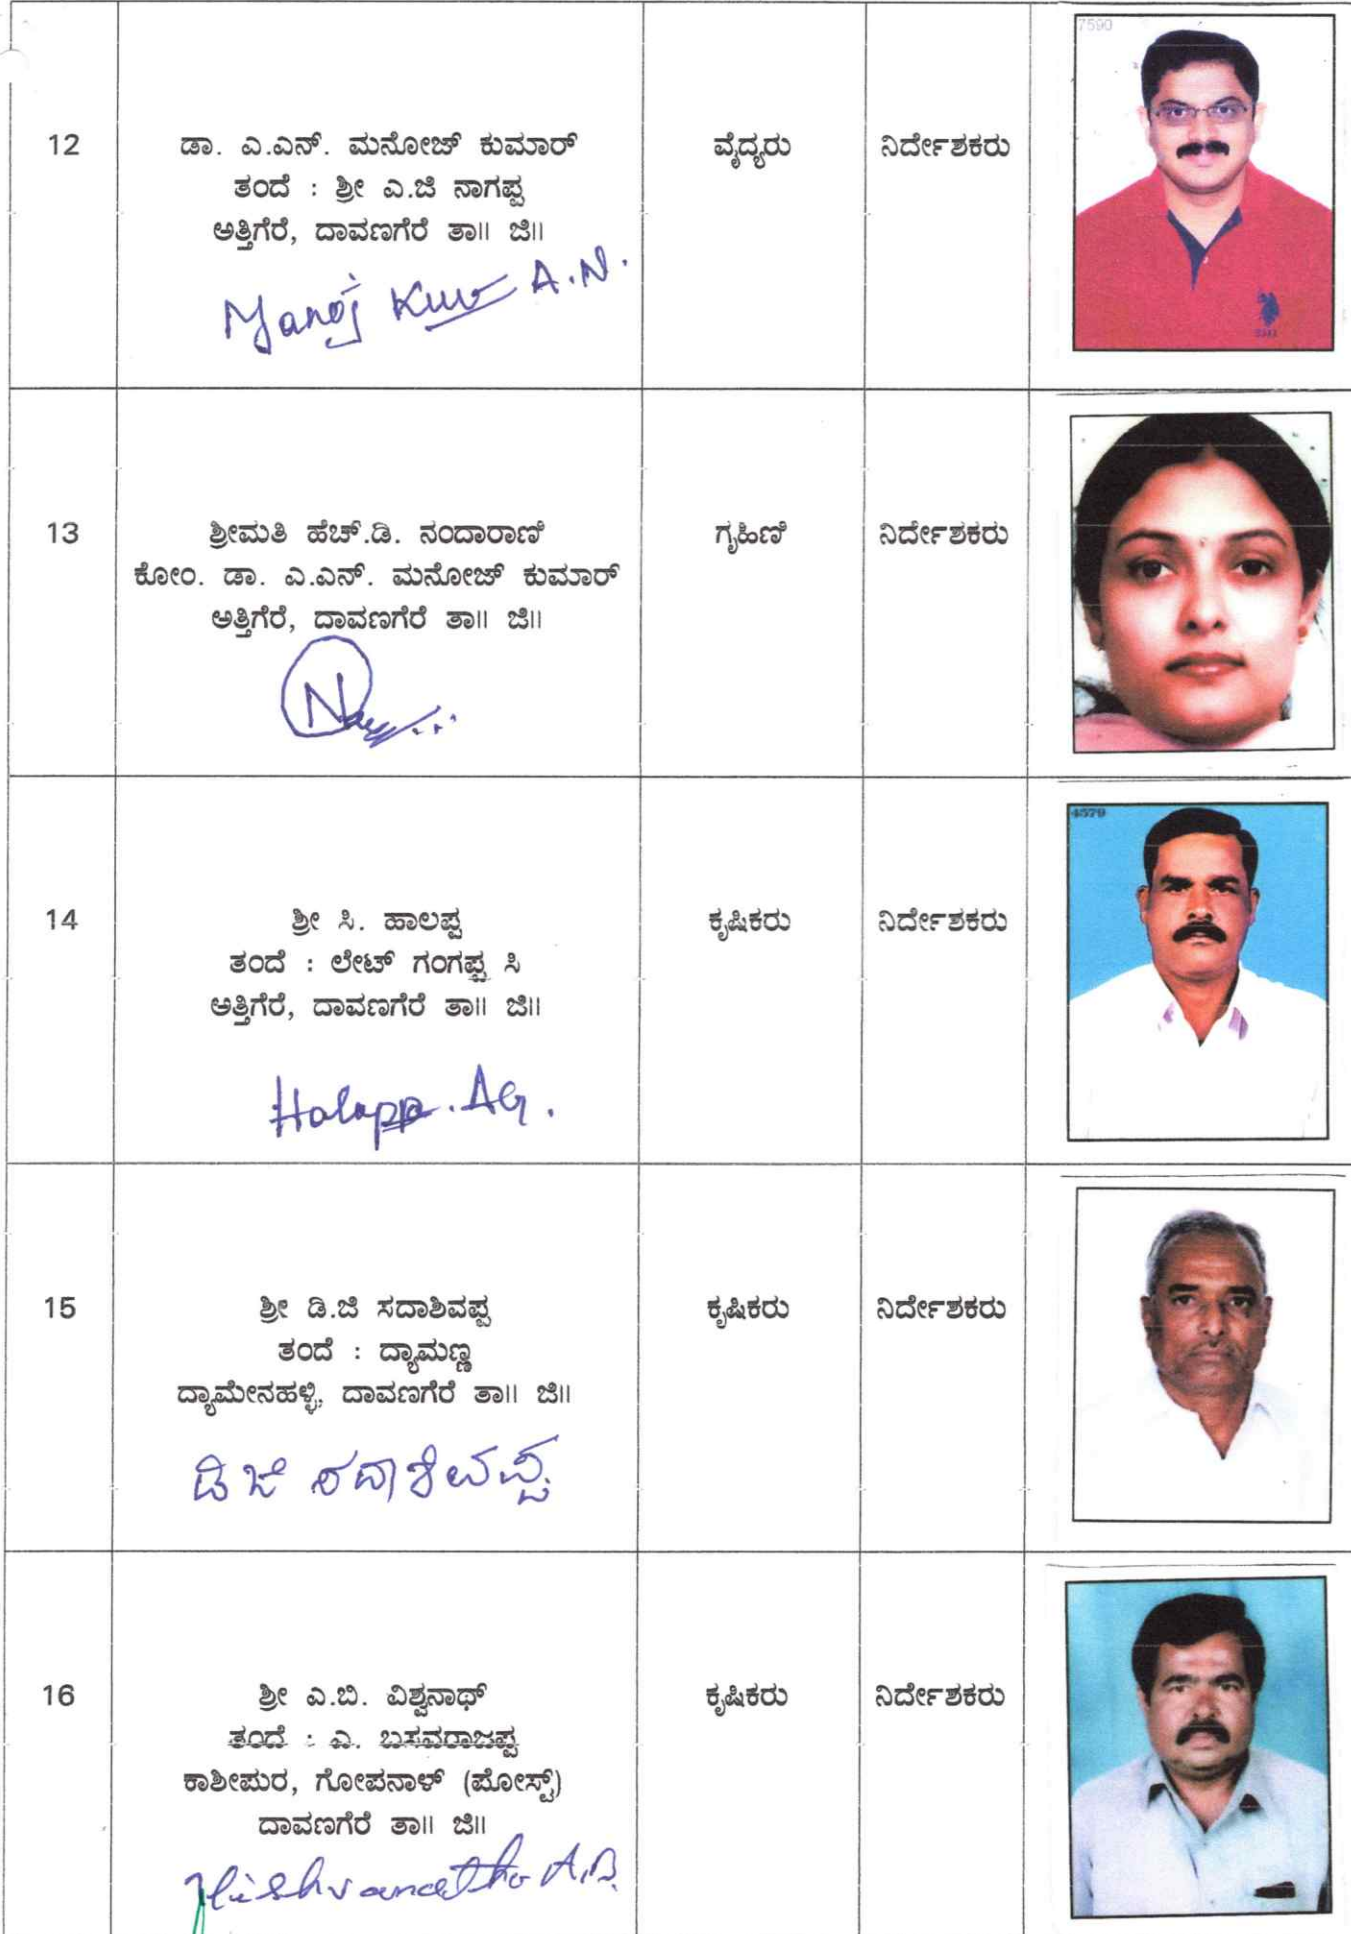 7590
12
ಡಾ. ಎ.ಎನ್. ಮನೋಜ್ ಕುಮಾರ್
ತಂದೆ : ಶ್ರೀ ಎ.ಜಿ ನಾಗಪ್ಪ
ಅತ್ತಿಗೆರೆ, ದಾವಣಗೆರೆ ತಾ॥ ಜಿ॥
Manoj Kumar A.N.
ವೈದ್ಯರು
ನಿರ್ದೇಶಕರು
13
ಶ್ರೀಮತಿ ಹೆಚ್.ಡಿ. ನಂದಾರಾಣಿ
ಕೋಂ. ಡಾ. ಎ.ಎನ್. ಮನೋಜ್ ಕುಮಾರ್
ಅತ್ತಿಗೆರೆ, ದಾವಣಗೆರೆ ತಾ॥ ಜಿ॥
ಗೃಹಿಣಿ
ನಿರ್ದೇಶಕರು
4579
14
ಶ್ರೀ ಸಿ. ಹಾಲಪ್ಪ
ತಂದೆ : ಲೇಟ್ ಗಂಗಪ್ಪ ಸಿ
ಅತ್ತಿಗೆರೆ, ದಾವಣಗೆರೆ ತಾ॥ ಜಿ॥
Halappa. AG.
ಕೃಷಿಕರು
ನಿರ್ದೇಶಕರು
15
ಶ್ರೀ ಡಿ.ಜಿ ಸದಾಶಿವಪ್ಪ
ತಂದೆ : ದ್ಯಾಮಣ್ಣ
ದ್ಯಾಮೇನಹಳ್ಳಿ, ದಾವಣಗೆರೆ ತಾ॥ ಜಿ॥
ಡಿ ಜಿ ಸದಾಶಿವಪ್ಪ
ಕೃಷಿಕರು
ನಿರ್ದೇಶಕರು
16
ಶ್ರೀ ಎ.ಬಿ. ವಿಶ್ವನಾಥ್
ತಂದೆ : ಎ. ಬಸವರಾಜಪ್ಪ
ಕಾಶೀಪುರ, ಗೋಪನಾಳ್ (ಪೋಸ್ಟ್)
ದಾವಣಗೆರೆ ತಾ॥ ಜಿ॥
Vishvanatha A.B.
ಕೃಷಿಕರು
ನಿರ್ದೇಶಕರು